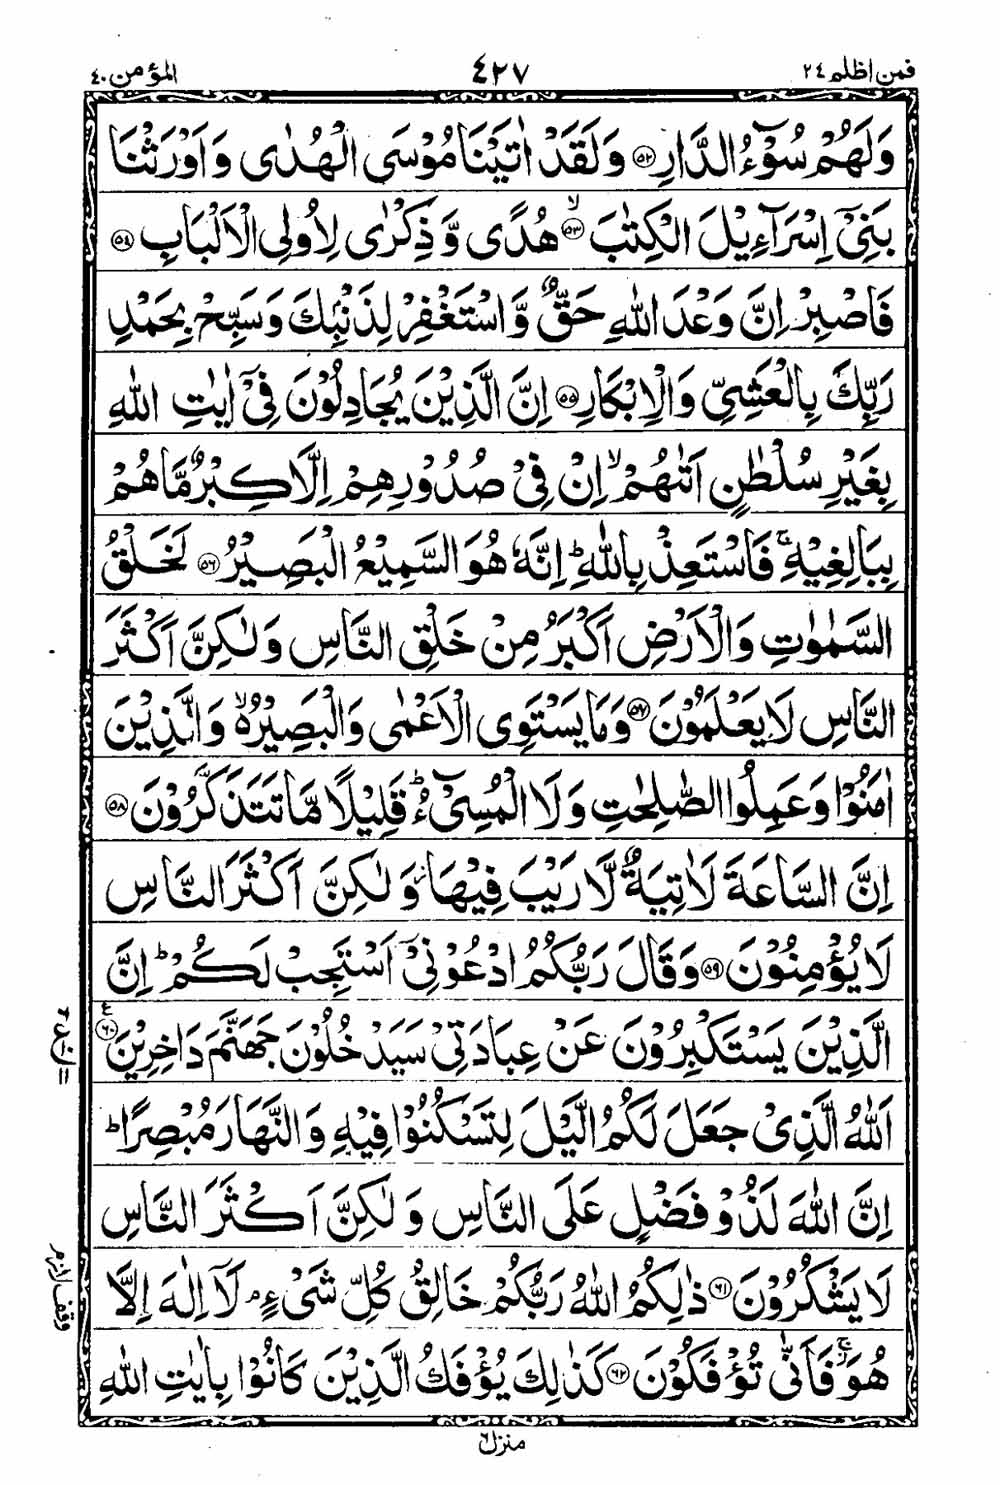 فمن اظلم ٢٤
٤٢٧
المؤمن ٤٠
وَلَهُمْ سُوْٓءُ الدَّارِ ﴿۵۲﴾ وَلَقَدْ اٰتَيْنَا مُوْسَى الْهُدٰى وَاَوْرَثْنَا
بَنِىْٓ اِسْرَآءِيْلَ الْكِتٰبَ ۙ﴿۵۳﴾ هُدًى وَّذِكْرٰى لِاُولِى الْاَلْبَابِ ﴿۵۴﴾
فَاصْبِرْ اِنَّ وَعْدَ اللّٰهِ حَقٌّ وَّاسْتَغْفِرْ لِذَنْۢبِكَ وَسَبِّحْ بِحَمْدِ
رَبِّكَ بِالْعَشِىِّ وَالْاِبْكَارِ ﴿۵۵﴾ اِنَّ الَّذِيْنَ يُجَادِلُوْنَ فِىْٓ اٰيٰتِ اللّٰهِ
بِغَيْرِ سُلْطٰنٍ اَتٰٮهُمْ ۙ اِنْ فِىْ صُدُوْرِهِمْ اِلَّا كِبْرٌ مَّا هُمْ
بِبَالِغِيْهِ ۚ فَاسْتَعِذْ بِاللّٰهِ ؕ اِنَّهٗ هُوَ السَّمِيْعُ الْبَصِيْرُ ﴿۵۶﴾ لَخَلْقُ
السَّمٰوٰتِ وَالْاَرْضِ اَكْبَرُ مِنْ خَلْقِ النَّاسِ وَلٰكِنَّ اَكْثَرَ
النَّاسِ لَا يَعْلَمُوْنَ ﴿۵۷﴾ وَمَا يَسْتَوِى الْاَعْمٰى وَالْبَصِيْرُ ۙ وَالَّذِيْنَ
اٰمَنُوْا وَعَمِلُوا الصّٰلِحٰتِ وَلَا الْمُسِىْٓءُ ؕ قَلِيْلًا مَّا تَتَذَكَّرُوْنَ ﴿۵۸﴾
اِنَّ السَّاعَةَ لَاٰتِيَةٌ لَّا رَيْبَ فِيْهَا وَلٰكِنَّ اَكْثَرَ النَّاسِ
لَا يُؤْمِنُوْنَ ﴿۵۹﴾ وَقَالَ رَبُّكُمُ ادْعُوْنِىْٓ اَسْتَجِبْ لَكُمْ ؕ اِنَّ
الَّذِيْنَ يَسْتَكْبِرُوْنَ عَنْ عِبَادَتِىْ سَيَدْخُلُوْنَ جَهَنَّمَ دَاخِرِيْنَ ﴿۶۰﴾ ع
اَللّٰهُ الَّذِىْ جَعَلَ لَكُمُ الَّيْلَ لِتَسْكُنُوْا فِيْهِ وَالنَّهَارَ مُبْصِرًا ؕ
اِنَّ اللّٰهَ لَذُوْ فَضْلٍ عَلَى النَّاسِ وَلٰكِنَّ اَكْثَرَ النَّاسِ
لَا يَشْكُرُوْنَ ﴿۶۱﴾ ذٰلِكُمُ اللّٰهُ رَبُّكُمْ خَالِقُ كُلِّ شَىْءٍ ۘ لَاۤ اِلٰهَ اِلَّا
هُوَ ۚ فَاَنّٰى تُؤْفَكُوْنَ ﴿۶۲﴾ كَذٰلِكَ يُؤْفَكُ الَّذِيْنَ كَانُوْا بِاٰيٰتِ اللّٰهِ
وقف لازم
منزل ٦